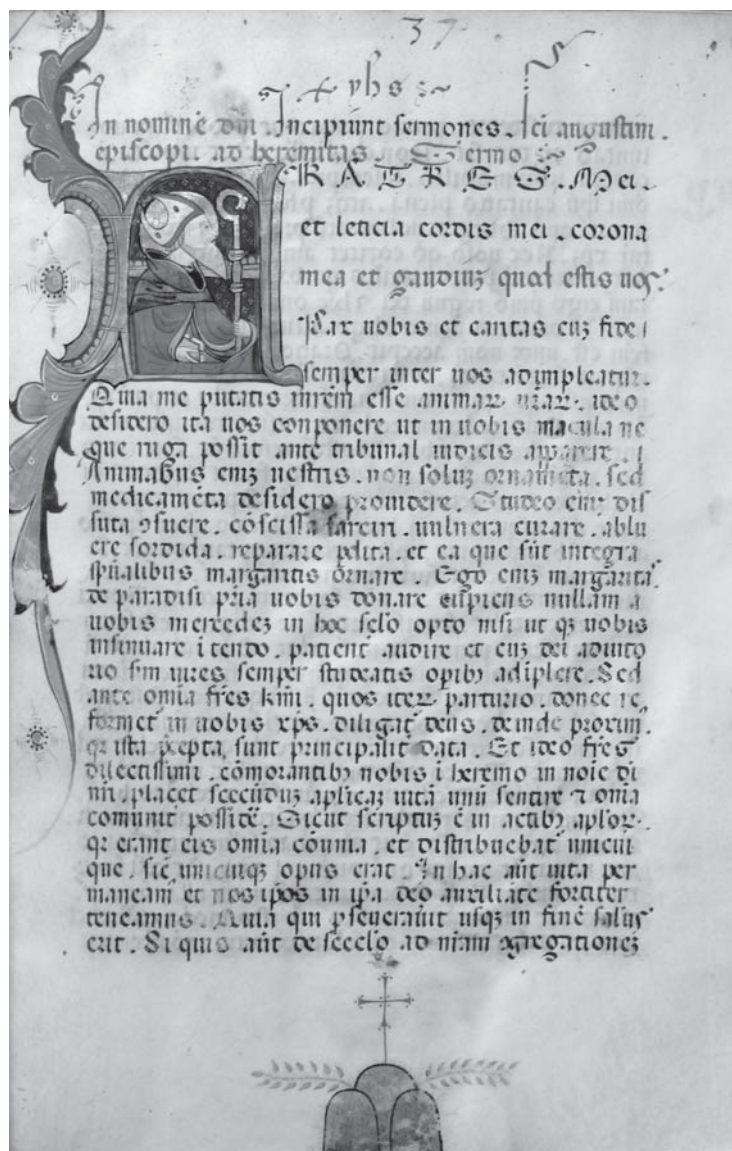 37
yhs
In nomine dni Incipiunt sermones sci augustini.
episcopi. ad heremitas. Sermo
FRATRES. Mei.
et leticia cordis mei. corona
mea et gaudiuz estis
Pax uobis et caritas cuz fide
semper inter uos adimpleatur.
Quia me putatis esse ideo
desidero ita uos conponere ut in uobis macula ne
que ruga possit ante tribunal iudicis apparere.
Animabus eniz uestris. non soluz ornamēta. sed
medicamēta desidero prouidere. Studeo eniz dis
suta ↄsuere. cōscissa sarcire. uulnera curare. ablu
ere sordida. reparare pdita. et ea que sūt integra
spūalibus margaritis ornare. Ego eniz margarita
de paradisi uobis donare cupiens nullam a
uobis mercedez in hoc sclo opto nisi ut qz uobis
insinuare itendo. patient audire et cuz dei adiuto
rio sm uires semper studeatis opibz adiplere. Sed
ante omia fres kmi. quos iter parturio. donec re
formet in uobis xps. diligat deus. deinde proxim.
qr ista pcepta sunt principalit data. Et ideo fres
dilectissimi. cōmorantibz nobis i heremo in noie di
ni. placet secunduz aplicaz uitā unū sentire ⁊ omia
comunit possidē. Sicut scriptuz ē in actibz aplor.
qr erant eis omia cōunia. et distribuebat unicui
que. sic unicuiqz opus erat. In hac aūt uita per
maneam et nos ipos in ipa deo auxiliāte fortiter
teneamus. Quia qui pseuerauit usqz in finē saluus
erit. Si quis aūt de seculo ad nram agregationez